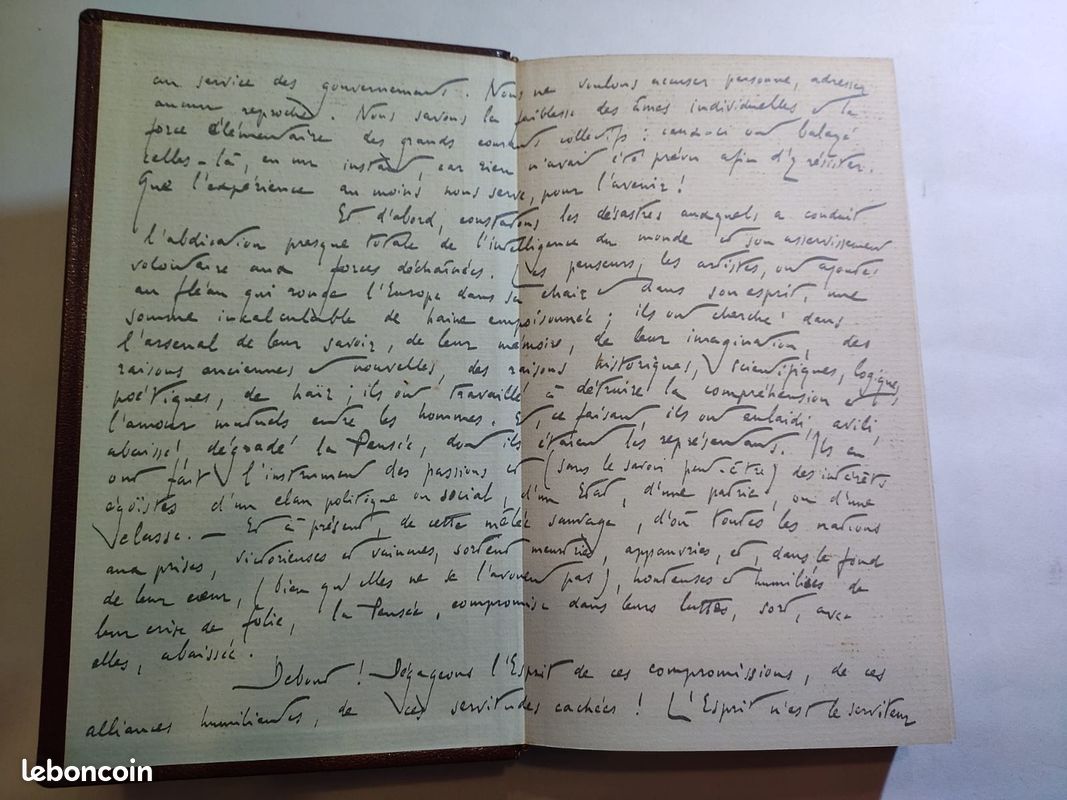 au service des gouvernements. Nous ne voulons accuser personne, adresser
aucun reproche. Nous savons la faiblesse des âmes individuelles et la
force élémentaire des grands courants collectifs : ceux-ci ont balayé
celles-là, en un instant, car rien n'avait été prévu afin d'y résister.
Que l'expérience au moins nous serve, pour l'avenir !
Et d'abord, constatons les désastres auxquels a conduit
l'abdication presque totale de l'intelligence du monde et son asservissement
volontaire aux forces déchaînées. Les penseurs, les artistes, ont ajouté
au fléau qui ronge l'Europe dans sa chair et dans son esprit, une
somme incalculable de haine empoisonnée ; ils ont cherché dans
l'arsenal de leur savoir, de leur mémoire, de leur imagination, des
raisons anciennes et nouvelles, des raisons historiques, scientifiques, logiques,
poétiques, de haïr ; ils ont travaillé à détruire la compréhension et
l'amour mutuels entre les hommes. Et, ce faisant, ils ont enlaidi, avili,
abaissé, dégradé la Pensée, dont ils étaient les représentants. Ils en
ont fait l'instrument des passions et (sans le savoir peut-être) des intérêts
égoïstes d'un clan politique ou social, d'un Etat, d'une patrie, ou d'une
classe. — Et à présent, de cette mêlée sauvage, d'où toutes les nations
aux prises, victorieuses et vaincues, sortent meurtries, appauvries, et, dans le fond
de leur cœur, (bien qu'elles ne se l'avouent pas), honteuses et humiliées de
leur crise de folie, la Pensée, compromise dans leurs luttes, sort, avec
elles, abaissée.
Debout ! Dégageons l'Esprit de ces compromissions, de ces
alliances humiliantes, de ces servitudes cachées ! L'Esprit n'est le serviteur
leboncoin